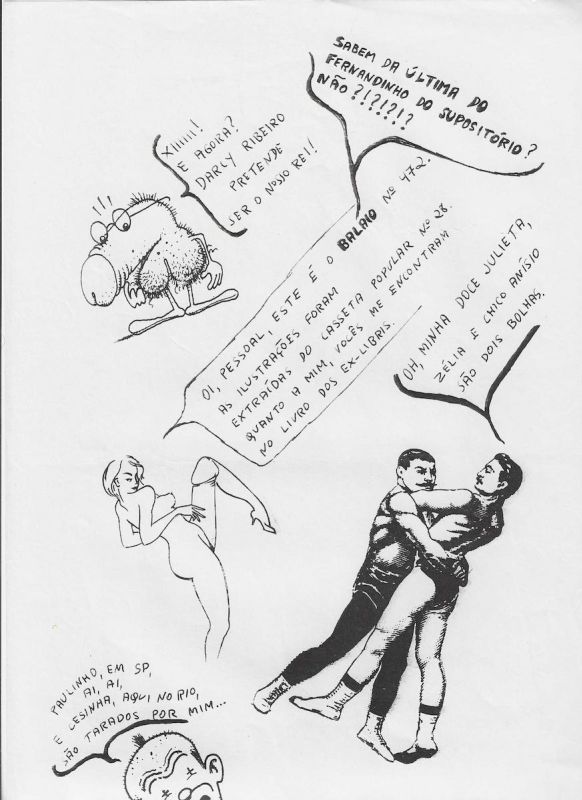 SABEM DA ÚLTIMA DO
FERNANDINHO DO SUPOSITÓRIO?
NÃO?!?!?!?
XIIIIII!
E AGORA?
DARCY RIBEIRO
PRETENDE
SER O NOSSO REI!
OI, PESSOAL, ESTE É O BALAIO Nº 472.
AS ILUSTRAÇÕES FORAM
EXTRAÍDAS DO CASSETA POPULAR Nº 28.
QUANTO A MIM, VOCÊS ME ENCONTRAM
NO LIVRO DOS EX-LIBRIS.
OH, MINHA DOCE JULIETA,
ZÉLIA E CHICO ANÍSIO
SÃO DOIS BOLHAS.
PAULINHO, EM SP,
AI, AI,
E CESINHA, AQUI NO RIO,
SÃO TARADOS POR MIM...